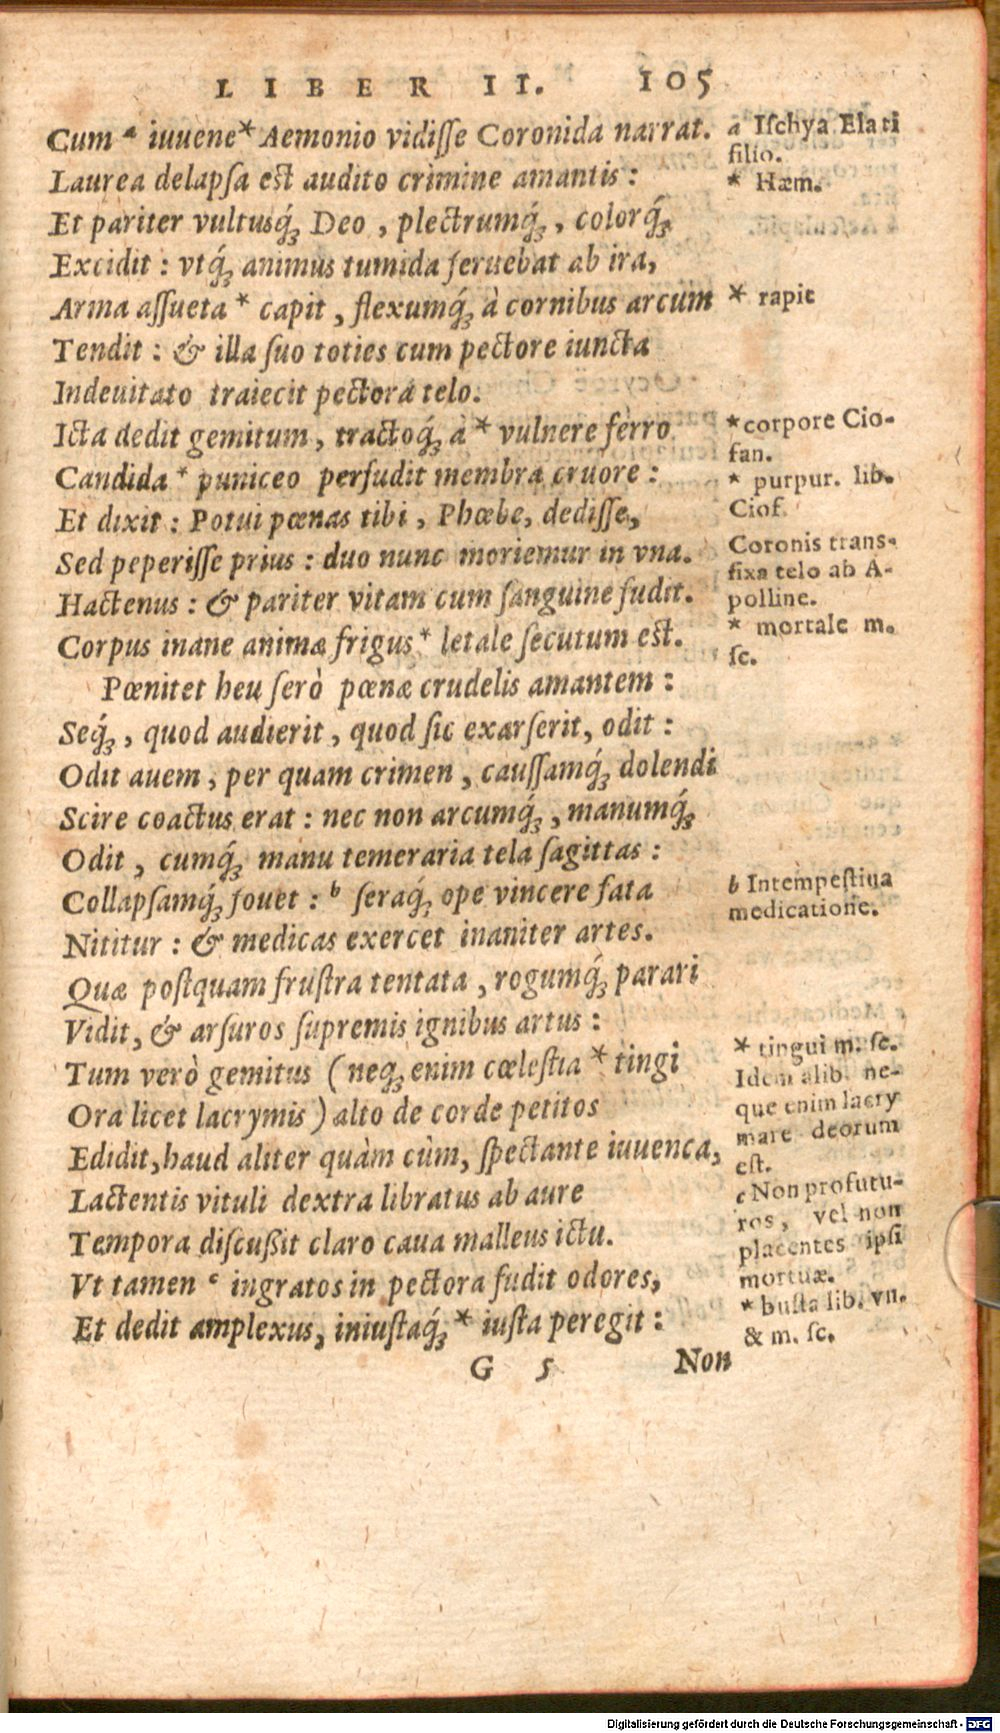 LIBER II. 105
Cum ᵃ iuuene* Aemonio vidiſſe Coronida narrat.
Laurea delapſa eſt audito crimine amantis :
Et pariter vultusq́ꝫ Deo , plectrumq́ꝫ , colorq́ꝫ
Excidit : vtq́ꝫ animus tumida feruebat ab ira,
Arma aſſueta * capit , flexumq́ꝫ à cornibus arcum
Tendit : & illa ſuo toties cum pectore iuncta
Indeuitato traiecit pectora telo.
Icta dedit gemitum, tractoq́ꝫ à * vulnere ferro
Candida * puniceo perfudit membra cruore :
Et dixit : Potui pœnas tibi , Phœbe, dediſſe,
Sed peperiſſe prius : duo nunc moriemur in vna.
Hactenus : & pariter vitam cum ſanguine fudit.
Corpus inane animæ frigus * letale ſecutum eſt.
Pœnitet heu ſerò pœnæ crudelis amantem :
Seq́ꝫ , quod audierit , quod ſic exarſerit, odit :
Odit auem , per quam crimen , cauſſamq́ꝫ dolendi
Scire coactus erat : nec non arcumq́ꝫ , manumq́ꝫ
Odit , cumq́ꝫ manu temeraria tela ſagittas :
Collapſamq́ꝫ fouet : ᵇ ſeraq́ꝫ ope vincere fata
Nititur : & medicas exercet inaniter artes.
Quæ poſtquam fruſtra tentata , rogumq́ꝫ parari
Vidit, & arſuros ſupremis ignibus artus :
Tum verò gemitus (neqꝫ enim cœleſtia * tingi
Ora licet lacrymis ) alto de corde petitos
Edidit, haud aliter quàm cùm, ſpectante iuuenca,
Lactentis vituli dextra libratus ab aure
Tempora diſcuſsit claro caua malleus ictu.
Vt tamen ᶜ ingratos in pectora fudit odores,
Et dedit amplexus, iniuſtaq́ꝫ * iuſta peregit :
G 5 Non
a Iſchya Elati
filio.
* Hæm.
* rapit
*corpore Cio-
fan.
* purpur. lib.
Ciof.
Coronis trans-
fixa telo ab A-
polline.
* mortale m.
ſc.
b Intempeſtiua
medicatione.
* tingui m. ſc.
Idem alib. ne-
que enim lacry
mare deorum
eſt.
c Non profutu-
ros, vel non
placentes ipſi
mortuæ.
* buſta lib. vn.
& m. ſc.
Digitalisierung gefördert durch die Deutsche Forschungsgemeinschaft - DFG